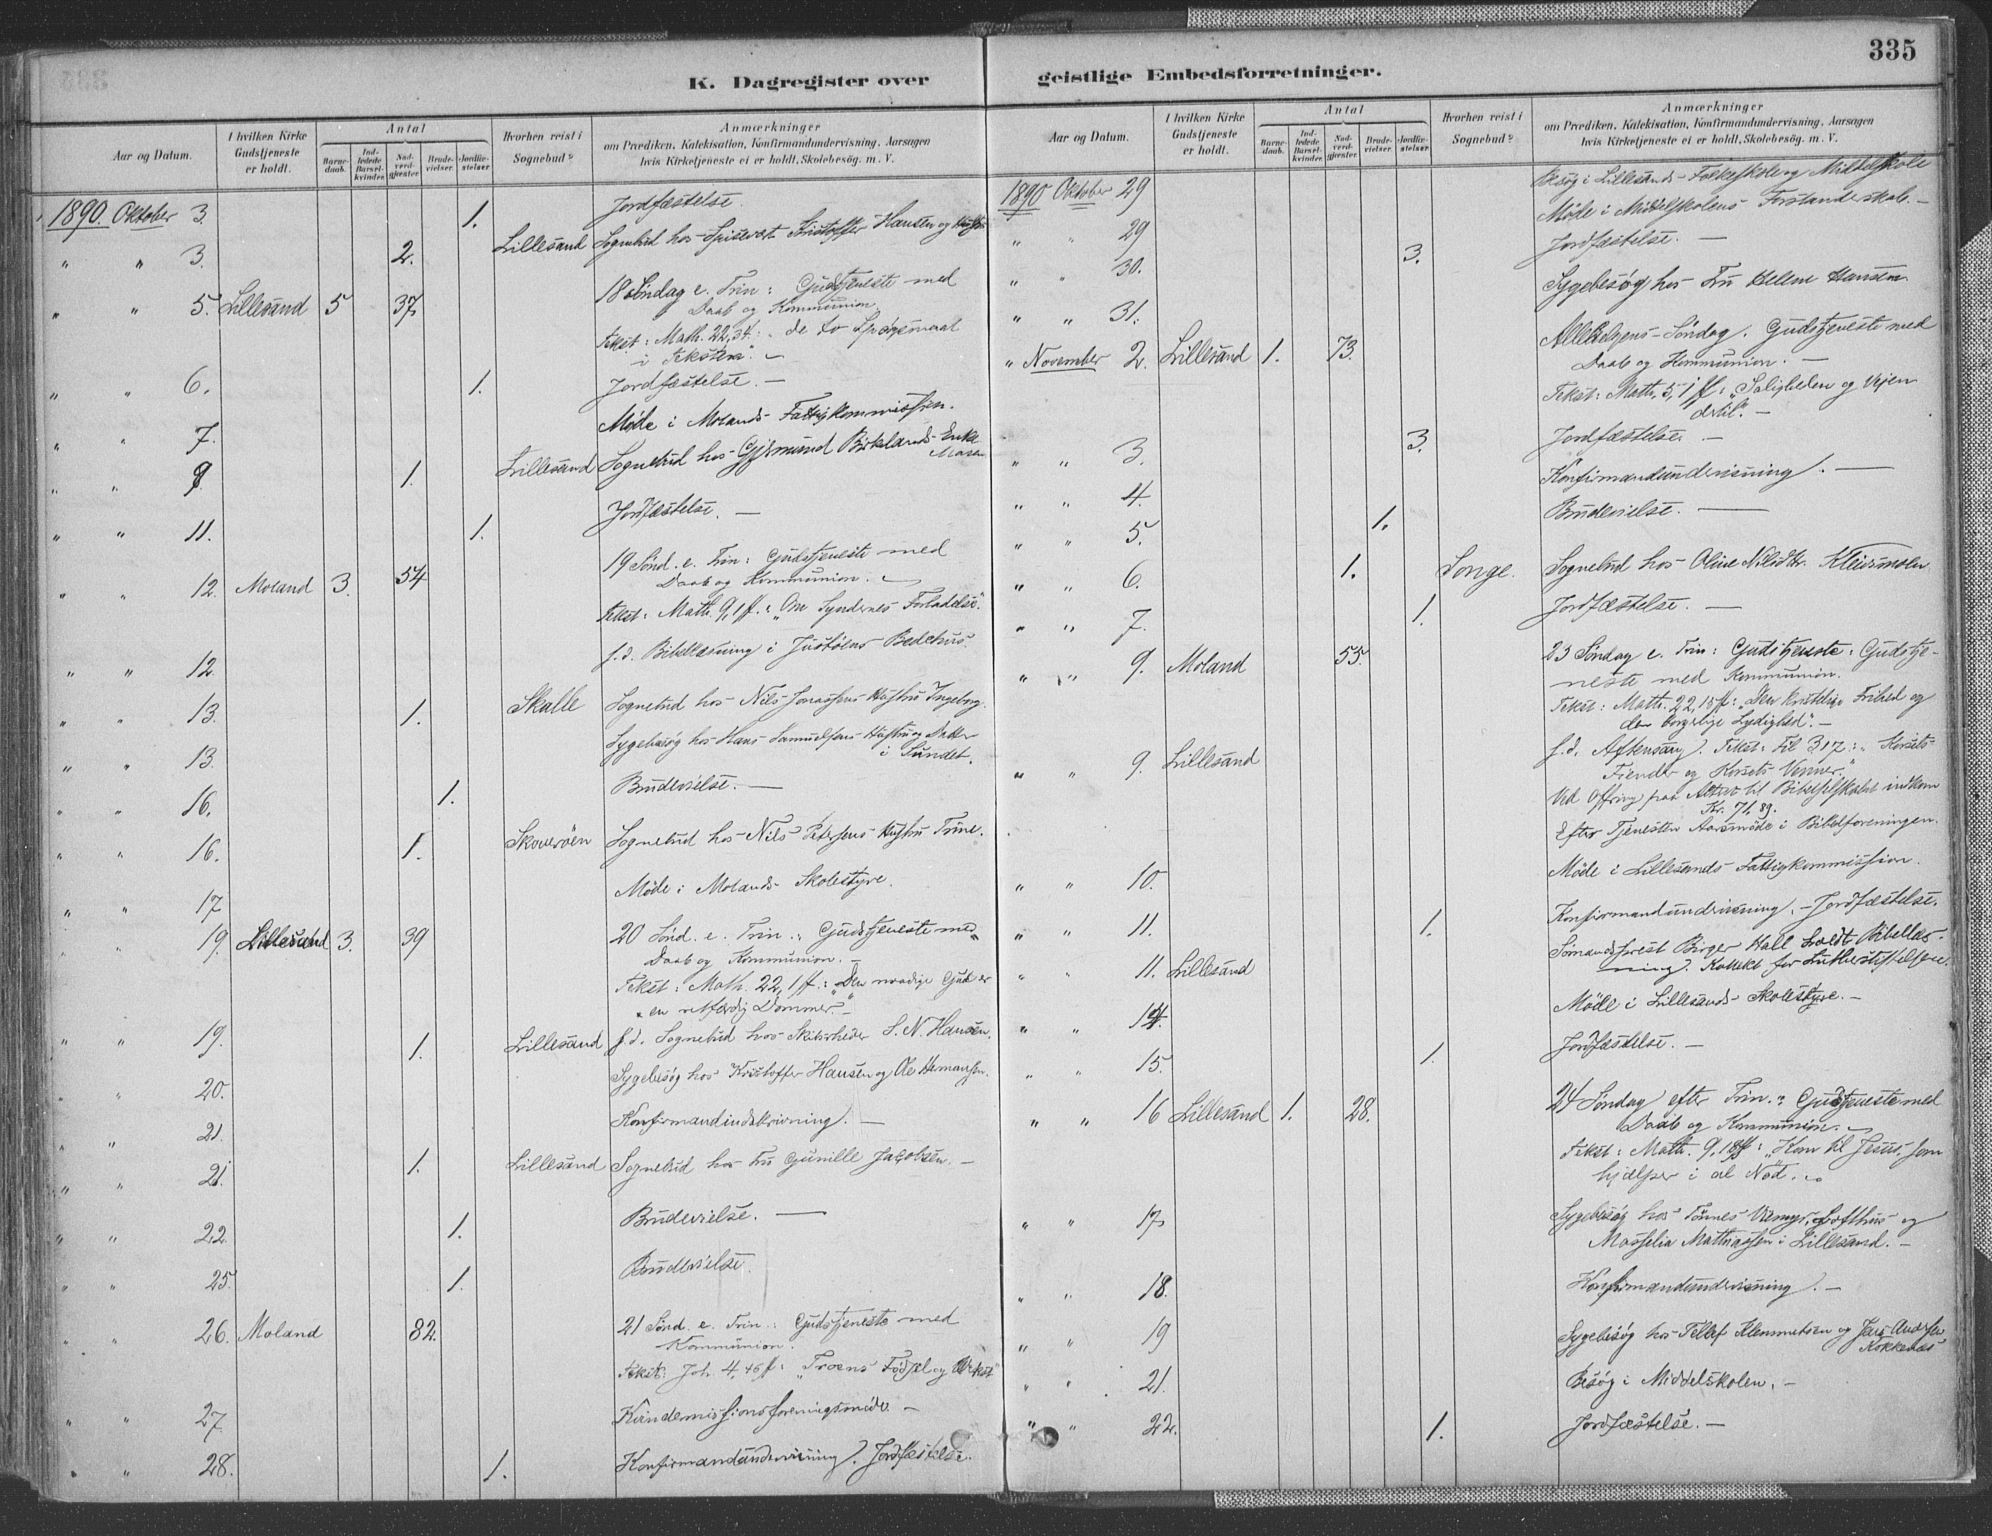 335
K. Dagregister over geistlige Embedsforretninger.
Aar og Datum.
I hvilken Kirke Gudstjeneste er holdt.
Antal
Barnedaab.
Indledede Barselkvinder.
Nadverdgjester.
Brudevielser.
Jordfæstelser
Hvorhen reist i Sognebud?
Anmærkninger
om Prædiken, Katekisation, Konfirmandundervisning, Aarsagen
hvis Kirketjeneste ei er holdt, Skolebesøg. m. V.
1890. Oktober 3. 1. Jordfæstelse.
" " 3. 2. Lillesand Sognebud hos Spisevært Kristoffer Hansen og Hustru
" " 5. Lillesand 5 37. 18 Søndag e. Trin: Gudstjeneste med
Daab og Kommunion.
Tekst: Math. 22,34: de to Spørgsmaal
i Teksten". –
" " 6. 1. Jordfæstelse. –
" " 7. Møde i Molands Fattigkommission.
" " 9. 1. Lillesand Sognebud hos Gjermund Birkelands Enke
Maren
" " 11. 1. Jordfæstelse. –
" " 12. Moland 3. 54 19 Sønd. e. Trin: Gudstjeneste med
Daab og Kommunion. –
Tekst: Math. 9,1 ff.: "Om Syndernes Forladelse".
" " 12. f. d. Bibellæsning i Justøens Bedehus.
" " 13. 1. Skalle Sognebud hos Nils Jonassens Hustru Ingeborg.
" " 13. Sygebesøg hos Hans Samuelsens Hustru og Datter
i Sundet.
" " 16. 1. Brudevielse. –
" " 16. 1. Skouerøen Sognebud hos Nils Petersens Hustru Trine.
" " 17 Møde i Molands Skolestyre.
" " 19. Lillesand 3. 39 20 Sønd. e. Trin.: Gudstjeneste med
Daab og Kommunion. –
Tekst: Math. 22,1 ff.: "Den naadige Gud er
en retfærdig Dommer" –
" " 19. 1. Lillesand f. d. Sognebud hos Skibsrheder S. N. Hansen.
" " 20. Sygebesøg hos Kristoffer Hansen og Ole Hermansen.
" " 21. Konfirmandindskrivning. –
" " 21. 1. Lillesand Sognebud hos Fru Gunille Jacobsen. –
" " 22 1. Brudevielse. –
" " 25. 1. Brudevielse.
" " 26. Moland 82. 21 Sønd. e. Trin.: Gudstjeneste med
Kommunion.
Tekst: Joh. 4,46 ff: "Troens Fødsel og Vækst"
" " 27. Kvindemissionsforeningsmøde –
" " 28. 1. Konfirmandundervisning. Jordfæstelse.
Aar og Datum.
I hvilken Kirke Gudstjeneste er holdt.
Antal
Barnedaab.
Indledede Barselkvinder.
Nadverdgjester.
Brudevielser.
Jordfæstelser
Hvorhen reist i Sognebud?
Anmærkninger
om Prædiken, Katekisation, Konfirmandundervisning, Aarsagen
hvis Kirketjeneste ei er holdt, Skolebesøg m. V.
1890 Oktober 29 Besøg i Lillesands Folkeskole og Middelskole
" " 29 Møde i Middelskolens Forstanderskab. –
" " 30. 3. Jordfæstelse. –
" " 31. Sygebesøg hos Fru Helene Hansen.
" November 2. Lillesand 1. 73. Allehelgens-Søndag. Gudstjeneste med
Daab og Kommunion. –
Tekst: Math. 5,1 ff.: "Saligheden og Vejen
dertil". –
" " 3. 3. Jordfæstelse. –
" " 4. Konfirmandundervisning. –
" " 5. 1. Brudevielse. –
" " 6. 1. Songe. Sognebud hos Oline Nilsdtr. Kleivsmolen
" " 7. 1. Jordfæstelse. –
" " 9. Moland 55. 23 Søndag e. Trin: Gudstjeneste: Gudstje-
neste med Kommunion.
Tekst: Math. 22,15 ff: "Den kristelige Frihed og
den borgerlige Lydighed". –
" " 9. Lillesand f. d. Aftensang. Tekst: Fil 3 17: "Korsets
Fiender og Korsets Venner."
Ved Offring paa Alteret til Bibelselskabet indkom
Kr. 71,89.
Efter Tjenesten Aarsmøde i Bibelforeningen.
" " 10. Møde i Lillesands Fattigkommission.
" " 11. 1. Konfirmandundervisning. – Jordfæstelse.
" " 11. Lillesand Sømandsprest Birger Hall holdt Bibellæs-
ning. Kollekt for Lutherstiftelsen.
" " 14. Møde i Lillesands Skolestyre. –
" " 15. 1. Jordfæstelse. –
" " 16 Lillesand 1. 28. 24 Søndag efter Trin.: Gudstjeneste med
Daab og Kommunion. –
Tekst: Math. 9,18 ff: "Kom til Jesus, som
hjælper i al Nød. –
" " 17. Sygebesøg hos Tønnes Lofthus og
Mathiassen i Lillesand. –
" " 18. Konfirmandundervisning. –
" " 19 Sygebesøg hos Tellef Klemmetsen og Jens Andersen
Kokkenes
" " 21. Besøg i Middelskolen. –
" " 22. 1. Jordfæstelse. –